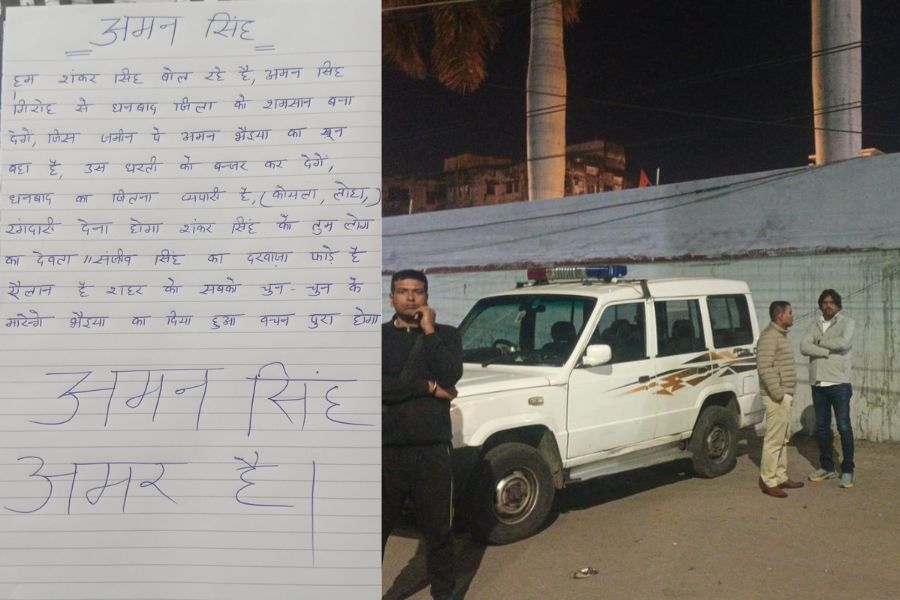 अमन सिंह
हम शंकर सिंह बोल रहे है, अमन सिंह
गिरोह से धनबाद जिला को शमसान बना
देगें, जिस जमीन पे अमन भैइया का खून
बहा है, उस धरती को बन्जर कर देगें,
धनबाद का जितना व्यपारी है, (कोयला, लोहा,)
रंगदारी देना होगा शंकर सिंह को तुम लोग
का देवता //संजीव सिंह का दरवाजा फोड़े है
ऐलान है शहर के सबको चुन-चुन के
मारेगें भैइया का दिया हुआ वचन पुरा होगा
अमन सिंह
अमर है।